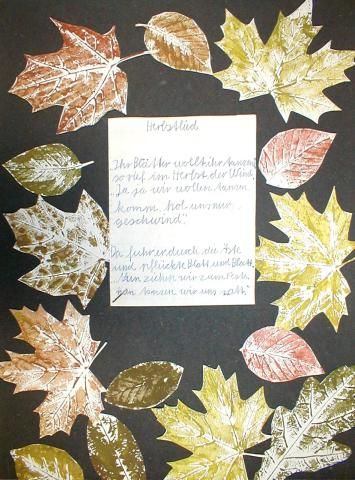 Herbstlied
Ihr Blätter wollt ihr tanzen
so rief im Herbst der Wind,
„Ja ja wir wollen tanzen
komm, hol uns nur
geschwind"
Da fuhr er durch die Äste
und pflückte Blatt und Blatt
Nun ziehen wir zum Feste
nun tanzen wir uns satt"